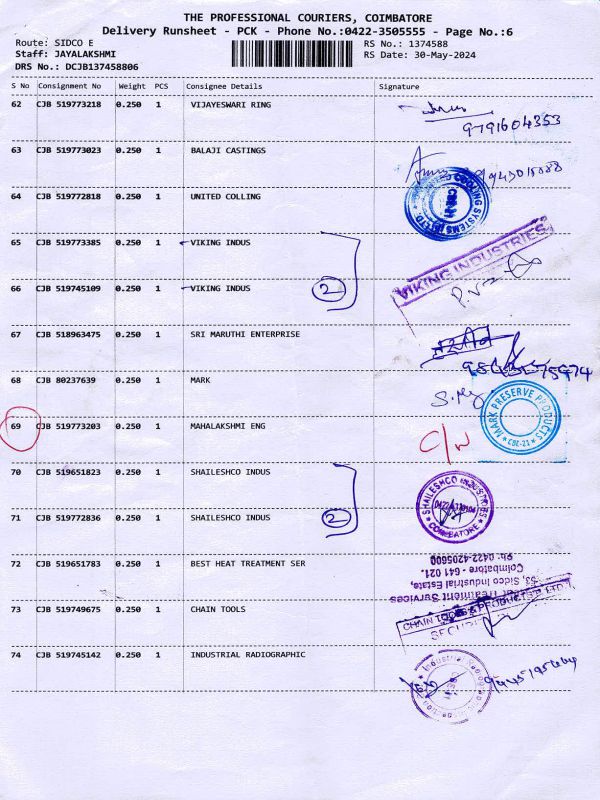 THE PROFESSIONAL COURIERS, COIMBATORE
Delivery Runsheet - PCK - Phone No.:0422-3505555 - Page No.:6
Route: SIDCO E RS No.: 1374588
Staff: JAYALAKSHMI RS Date: 30-May-2024
DRS No.: DCJB137458806
S No Consignment No Weight PCS Consignee Details Signature
62 CJB 519773218 0.250 1 VIJAYESWARI RING
9791604353
63 CJB 519773023 0.250 1 BALAJI CASTINGS
64 CJB 519772818 0.250 1 UNITED COLLING
COOLING SYSTEMS
65 CJB 519773385 0.250 1 VIKING INDUS
VIKING INDUSTRIES
66 CJB 519745109 0.250 1 VIKING INDUS 2
67 CJB 518963475 0.250 1 SRI MARUTHI ENTERPRISE
68 CJB 80237639 0.250 1 MARK
MARK PRESERVE PRODUCTS
CBE-21
69 CJB 519773203 0.250 1 MAHALAKSHMI ENG
C/N
70 CJB 519651823 0.250 1 SHAILESHCO INDUS
SHAILESHCO INDUSTRIES
COIMBATORE
71 CJB 519772836 0.250 1 SHAILESHCO INDUS 2
72 CJB 519651783 0.250 1 BEST HEAT TREATMENT SER
Treatment Services
53, Sidco Industrial Estate,
Coimbatore - 641 021.
Ph: 0422-4205600
73 CJB 519749675 0.250 1 CHAIN TOOLS
74 CJB 519745142 0.250 1 INDUSTRIAL RADIOGRAPHIC
Industrial